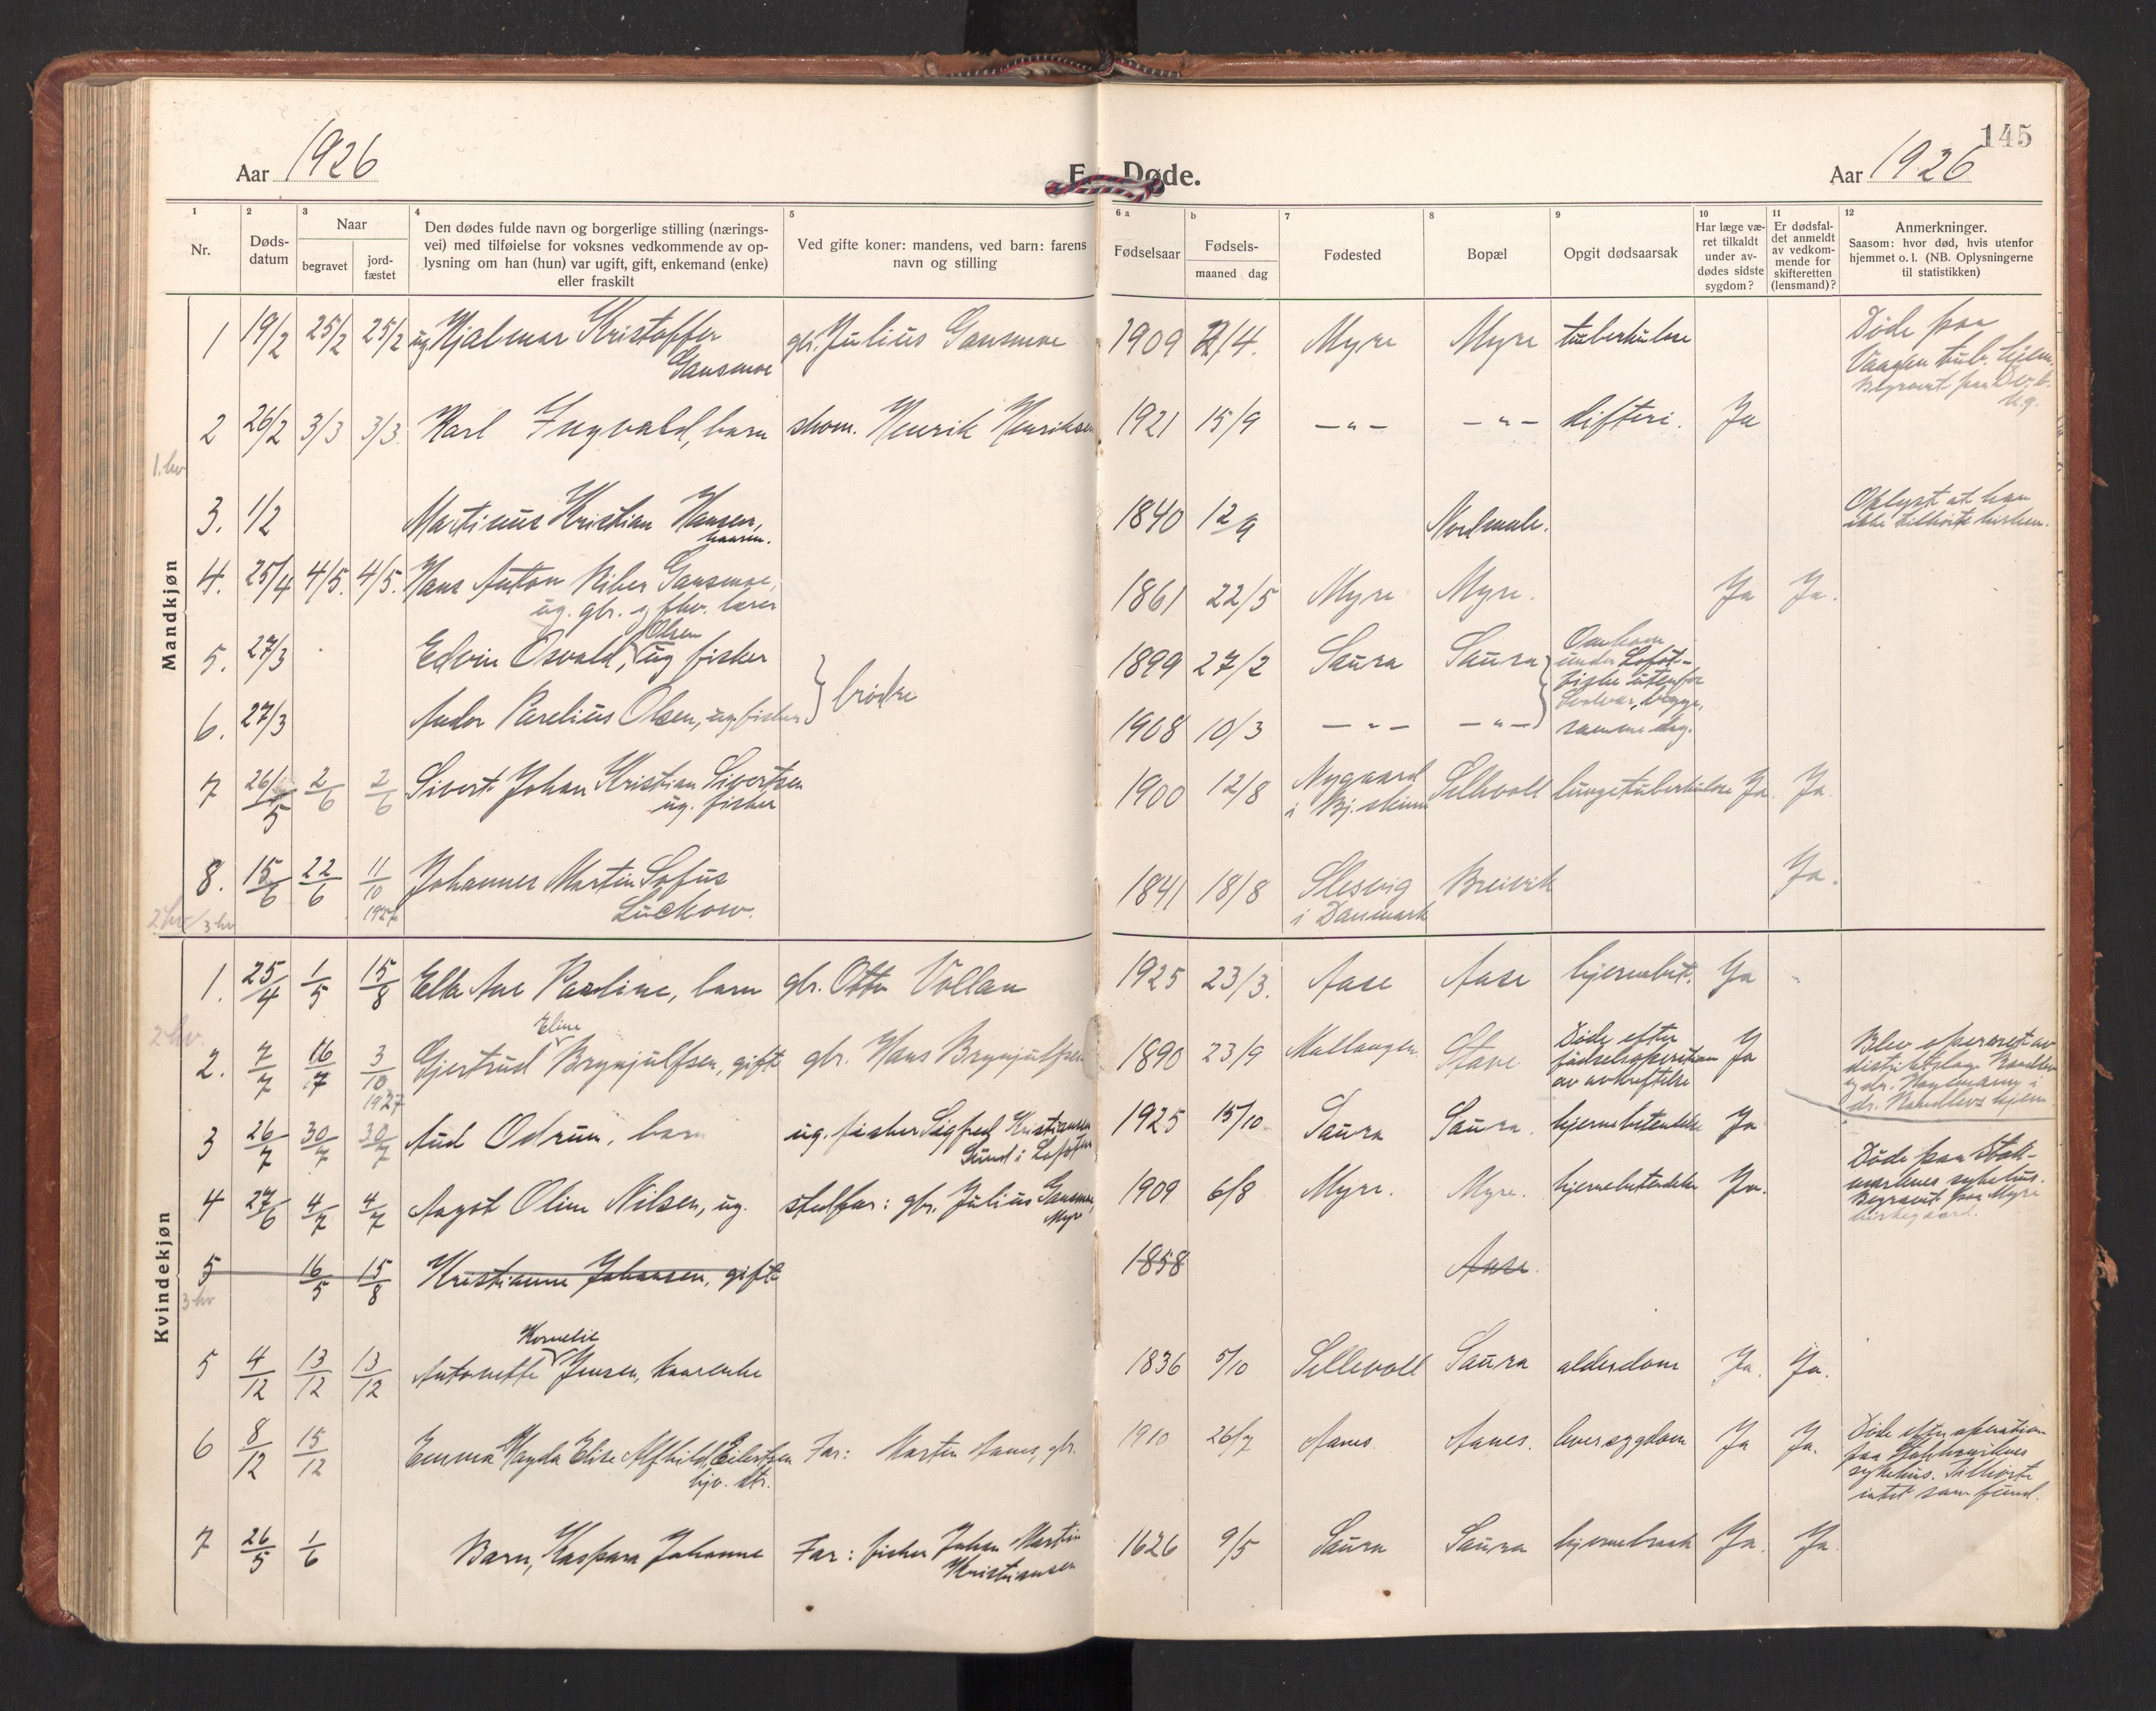 145
Aar 1926
E. Døde.
Aar 1926
1 Nr.
2 Døds-
datum
3 Naar
begravet
jord-
fæstet
4 Den dødes fulde navn og borgerlige stilling (nærings-
vei) med tilføielse for voksnes vedkommende av op-
lysning om han (hun) var ugift, gift, enkemand (enke)
eller fraskilt
5 Ved gifte koner: mandens, ved barn: farens
navn og stilling
6 a Fødselsaar
b Fødsels-
maaned dag
7 Fødested
8 Bopæl
9 Opgit dødsaarsak
10 Har læge væ-
ret tilkaldt
under av-
dødes sidste
sygdom?
11 Er dødsfal-
det anmeldt
av vedkom-
mende for
skifteretten
(lensmand)?
12 Anmerkninger.
Saasom: hvor død, hvis utenfor
hjemmet o. l. (NB. Oplysningerne
til statistikken)
Mandkjøn
1 19/2 25/2 25/2 ug Hjalmar Kristoffer gbr. Julius Gansmoe 1909 /4. Myre Myre tuberkulose Døde paa
Gansmoe Vaagen tub. hjem.
Begravet paa
2 26/2 3/3 3/3. Karl Ingvald, barn skom. Henrik Henriksen 1921 15/9 —"— —"— difteri. Ja
1. hv
3. 1/2 Martinus Kristian Hansen, 1840 12/9 Nordmele. Oplyst at han
kaarm. ikke tilhørte kirken.
4. 25/4 4/5. 4/5. Hans Anton Riber Gansmoe, 1861 22/5 Myre Myre. Ja Ja.
ug. gbr. og fhv. lærer
5. 27/3 Edvin Osvald, Olsen ug fisker 1899 27/2 Saura Saura Omkom
under Lofot-
fiske utenfor
6. 27/3 Andor Parelius Olsen, ug. fisker } brødre 1908 10/3 —"— —"— Svolvær, begge,
samme dag.
7 26/5 2/6 2/6 Sivert Johan Kristian Sivertsen 1900 12/8 Nygaard Sellevoll lungetuberkulose Ja. Ja.
ug. fisker i Bj. skinn
8. 15/6 22/6 11/10 Johannes Martin Sofus 1841 18/8 Slesvig Breivik Ja.
Luckow. i Danmark
2. hv/3 hv
Kvindekjøn
1. 25/4 1/5 15/8 Ella Ane Paoline, barn gbr. Otto Vollan 1925 23/3. Aase Aase hjernebet. Ja
2 hv.
2. 7/7 16/7 3/10 1927 Gjertrud Eline Brynjulfsen, gift gbr. Hans Brynjulfsen 1890 23/9 Mallangen Stave Døde efter Ja Blev operert av
fødselsoperation distriktslæge
av avkræftelse og dr. Hagemann i
dr. hjem
3 26/7 30/7 30/7 Aud Odrun, barn ug. fisker Sigfred Kristiansen 1925 15/10 Saura Saura. hjernebetændelse Ja
Sund i Lofoten
4 27/6 4/7 4/7 Aagot Oline Nilsen, ug. stedfar: gbr. Julius Gansmoe, 1909 6/8 Myre. Myre. hjernebetændelse Ja. Døde paa Stok-
Myre marknes sykehus.
Begravet paa Myre
kirkegaard.
5 16/5 15/8 Kristianne Johansen, gift 1858 Aase.
3 hv
5 4/12 13/12 13/12 Antonette Kornelie Jensen, kaarenke 1836 5/10 Sellevoll Saura alderdom Ja. Ja.
6 8/12 15/12 Emma Magda Elise Alfhild Eilertsen Far: Martin Aanes, gbr. 1910 26/7 Aanes. Aanes. leversygdom Ja Ja. Døde efter operation
hjv. dtr. paa Stokmarknes
sykehus. Tilhørte
intet samfund.
7 26/5 1/6 Barn, Kaspara Johanne Far: fisker Johan Martin 1626 9/5 Saura Saura hjernebrusk Ja. Ja.
Kristiansen